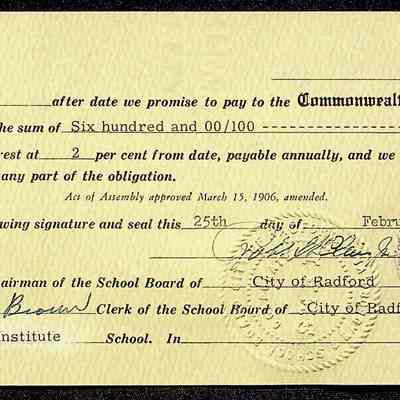 after date we promise to pay to the Commonwealt
he sum of Six hundred and 00/100 ----------------
rest at 2 per cent from date, payable annually, and we
any part of the obligation.
Act of Assembly approved March 15, 1906, amended.
wing signature and seal this 25th day of Febru
airman of the School Board of City of Radford
Brown Clerk of the School Board of City of Radf
nstitute School. In